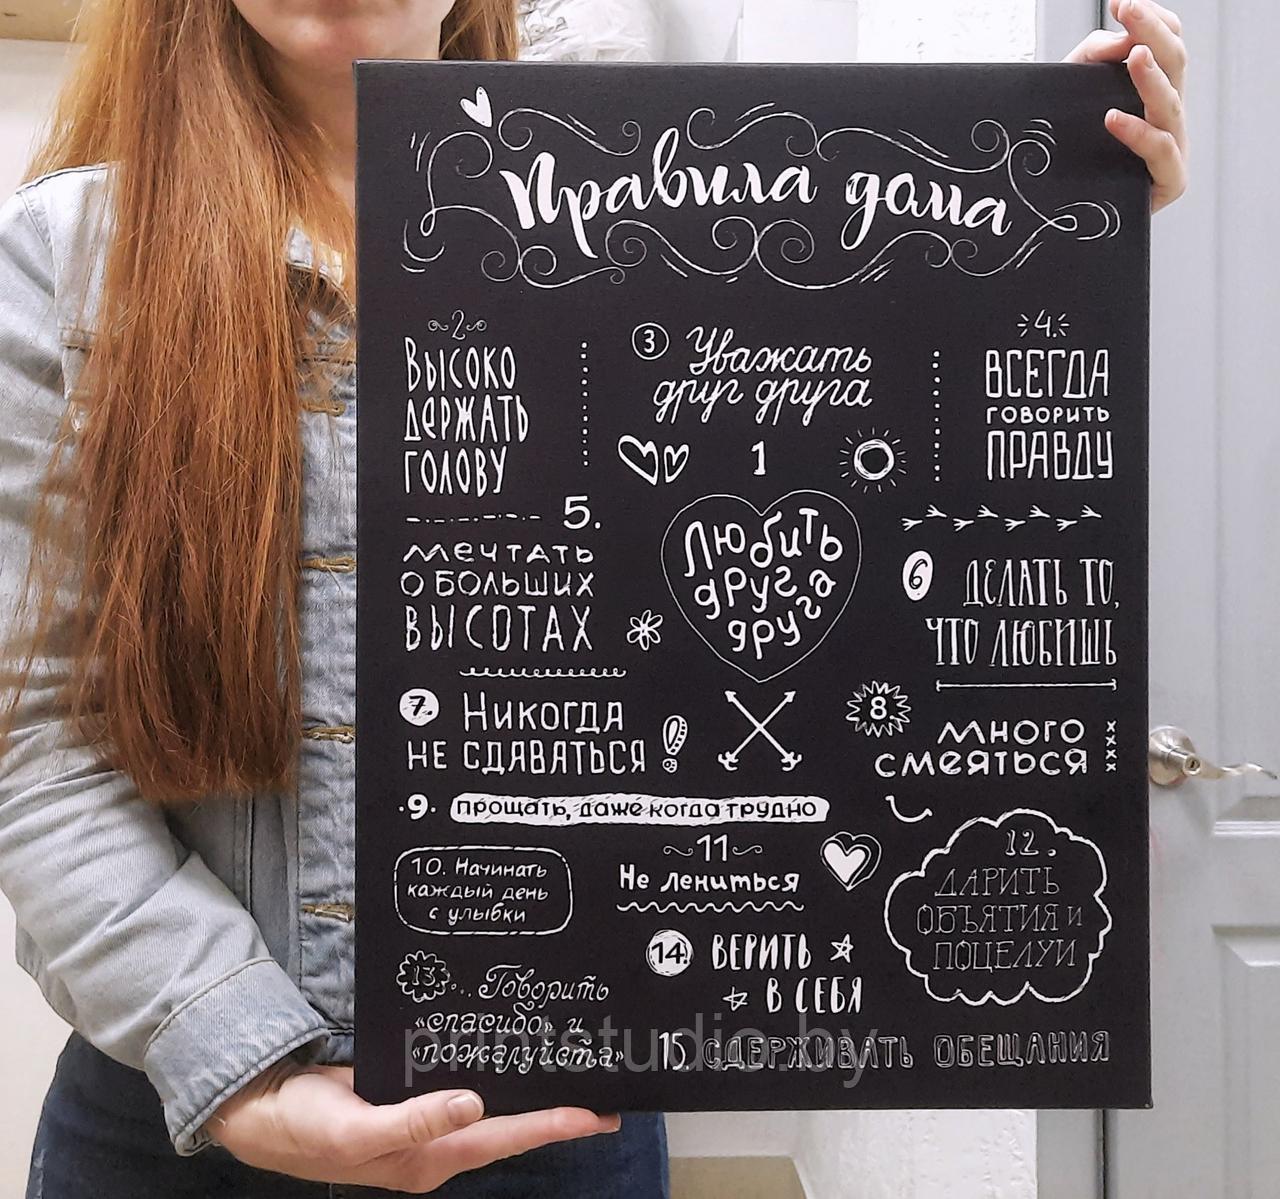 Правила дома
2
Высоко
держать
голову
3 Уважать
друг друга
4.
ВСЕГДА
говорить
ПРАВДУ
1
Любить
друг
друга
5.
мечтать
о больших
высотах
6 ДЕЛАТЬ ТО,
ЧТО ЛЮБИШЬ
7. Никогда
не сдаваться
8.
много
смеяться
9. прощать, даже когда трудно
10. Начинать
каждый день
с улыбки
11
Не лениться
12.
ДАРИТЬ
ОБЪЯТИЯ и
ПОЦЕЛУИ
13... Говорить
«спасибо» и
«пожалуйста»
14. ВЕРИТЬ
В СЕБЯ
15. СДЕРЖИВАТЬ ОБЕЩАНИЯ
printstudio.by